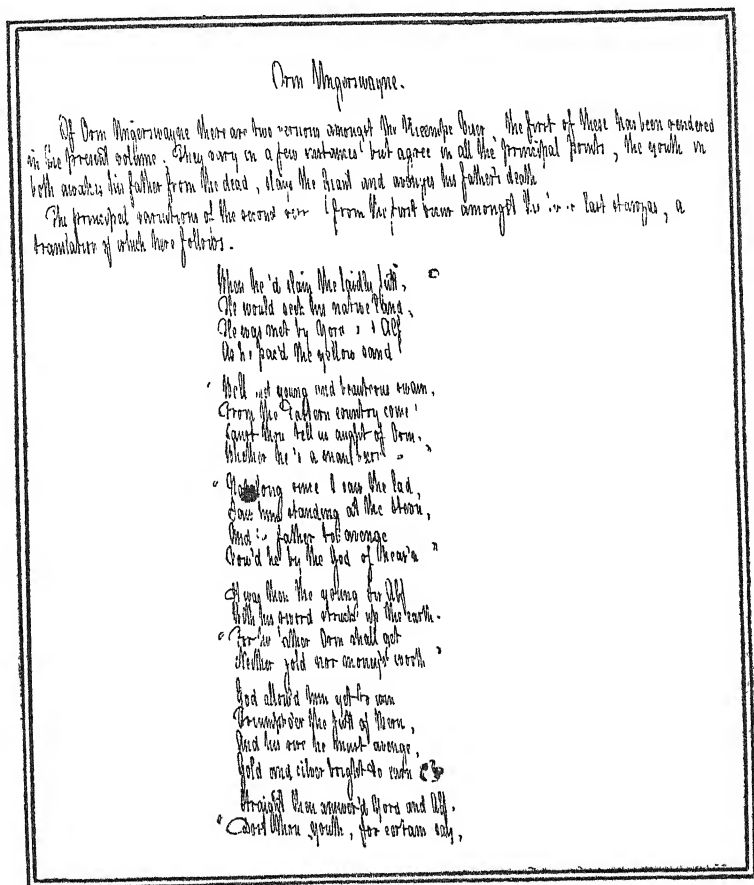 Orm Ungerswayne.
Of Orm Ungerswayne there are two versions amongst the Kiæmpe Viser, the first of these has been rendered
in the present volume. They vary in a few instances but agree in all the principal points, the youth in
both awakes his father from the dead, slays the giant and avenges his father's death
The principal variations of the second from the first occur amongst the last stanzas, a
translation of which here follows.
When he'd slain the laidly jutt,
He would seek his native land,
He was met by Gord Alf
As he pac'd the yellow sand
"Well met young and beauteous swain,
From the Eastern country come!
Canst thou tell us aught of Orm,
Whether he's a man"
"Not long since I saw the lad,
Saw him standing at the
And father to avenge
Vow'd he by the God of Heav'n"
It was then the young Sir Alf
With his sword struck up the earth.
"For his father Orm shall get
Neither gold nor money's worth"
God allow'd him yet to win
Triumph o'er the jutt of Bern,
And his sire he must avenge,
Gold and silver bright to earn
Straight then answer'd Gord and Alf.
"Dost thou, youth, for certain say,